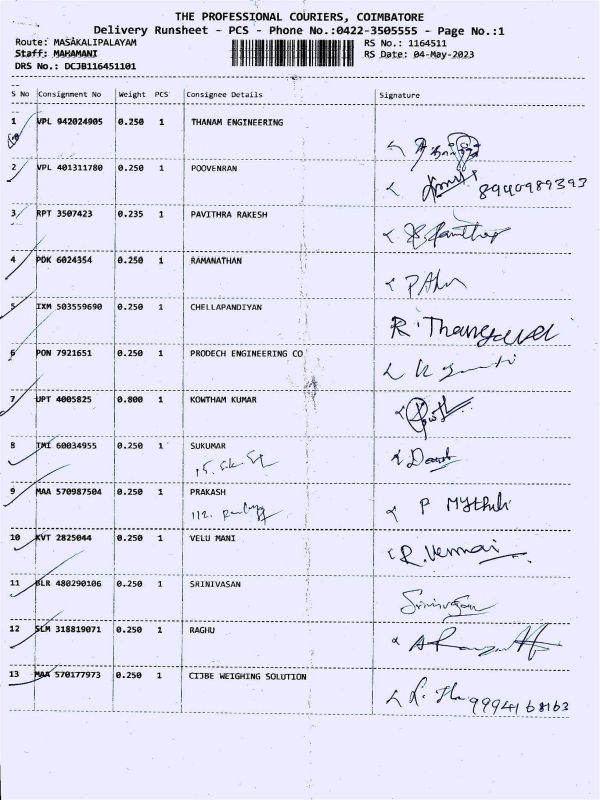 THE PROFESSIONAL COURIERS, COIMBATORE
Delivery Runsheet - PCS - Phone No.:0422-3505555 - Page No.:1
Route: MASAKALIPALAYAM RS No.: 1164511
Staff: MAHAMANI RS Date: 04-May-2023
DRS No.: DCJB116451101
S No Consignment No Weight PCS Consignee Details Signature
1 VPL 942024905 0.250 1 THANAM ENGINEERING
2 VPL 401311780 0.250 1 POOVENRAN 8940989393
3 RPT 3507423 0.235 1 PAVITHRA RAKESH
4 PDK 6024354 0.250 1 RAMANATHAN
5 IXM 503559690 0.250 1 CHELLAPANDIYAN R. Thangavel
6 PON 7921651 0.250 1 PRODECH ENGINEERING CO
7 UPT 4005825 0.800 1 KOWTHAM KUMAR
8 TMI 60034955 0.250 1 SUKUMAR
9 MAA 570987504 0.250 1 PRAKASH P Mythili
112.
10 KVT 2825044 0.250 1 VELU MANI
11 BLR 480290106 0.250 1 SRINIVASAN Srinivasan
12 SLM 318819071 0.250 1 RAGHU
13 MAA 570177973 0.250 1 CIJBE WEIGHING SOLUTION 9994168163